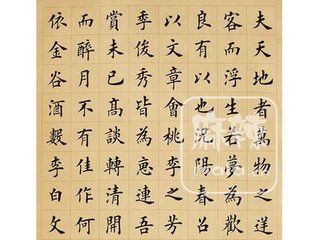 夫天地者萬物之逆
客而浮生若夢為歡
良有以也況陽春召
以文章會桃李之芳
季俊秀皆為惠連吾
賞未已高談轉清開
而醉月不有佳作何
依金谷酒數李白文